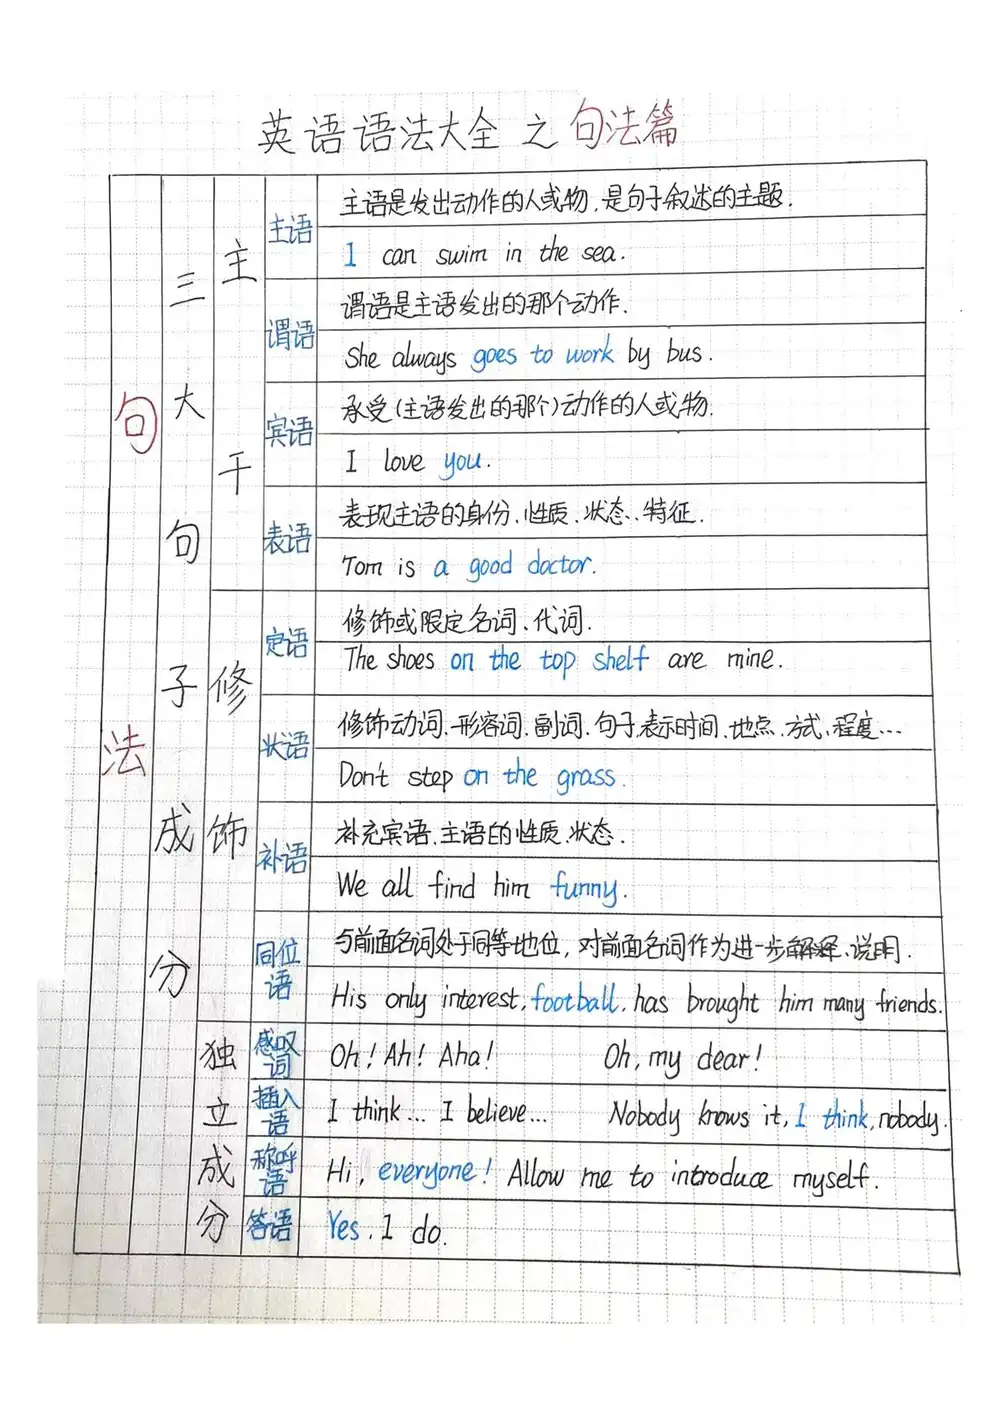 英语语法大全之句法篇
句法
三大句子成分
主干
主语
主语是发出动作的人或物、是句子叙述的主题.
I can swim in the sea.
谓语
谓语是主语发出的那个动作.
She always goes to work by bus.
宾语
承受(主语发出的那个)动作的人或物.
I love you.
表语
表现主语的身份、性质、状态、特征.
Tom is a good doctor.
修饰
定语
修饰或限定名词、代词.
The shoes on the top shelf are mine.
状语
修饰动词、形容词、副词、句子表示时间、地点、方式、程度…
Don't step on the grass.
补语
补充宾语、主语的性质、状态.
We all find him funny.
同位语
与前面名词处于同等地位，对前面名词作为进一步解释、说明.
His only interest, football, has brought him many friends.
独立成分
感叹词
Oh! Ah! Aha! Oh, my dear!
插入语
I think... I believe... Nobody knows it, I think, nobody.
称呼语
Hi, everyone! Allow me to introduce myself.
答语
Yes. I do.